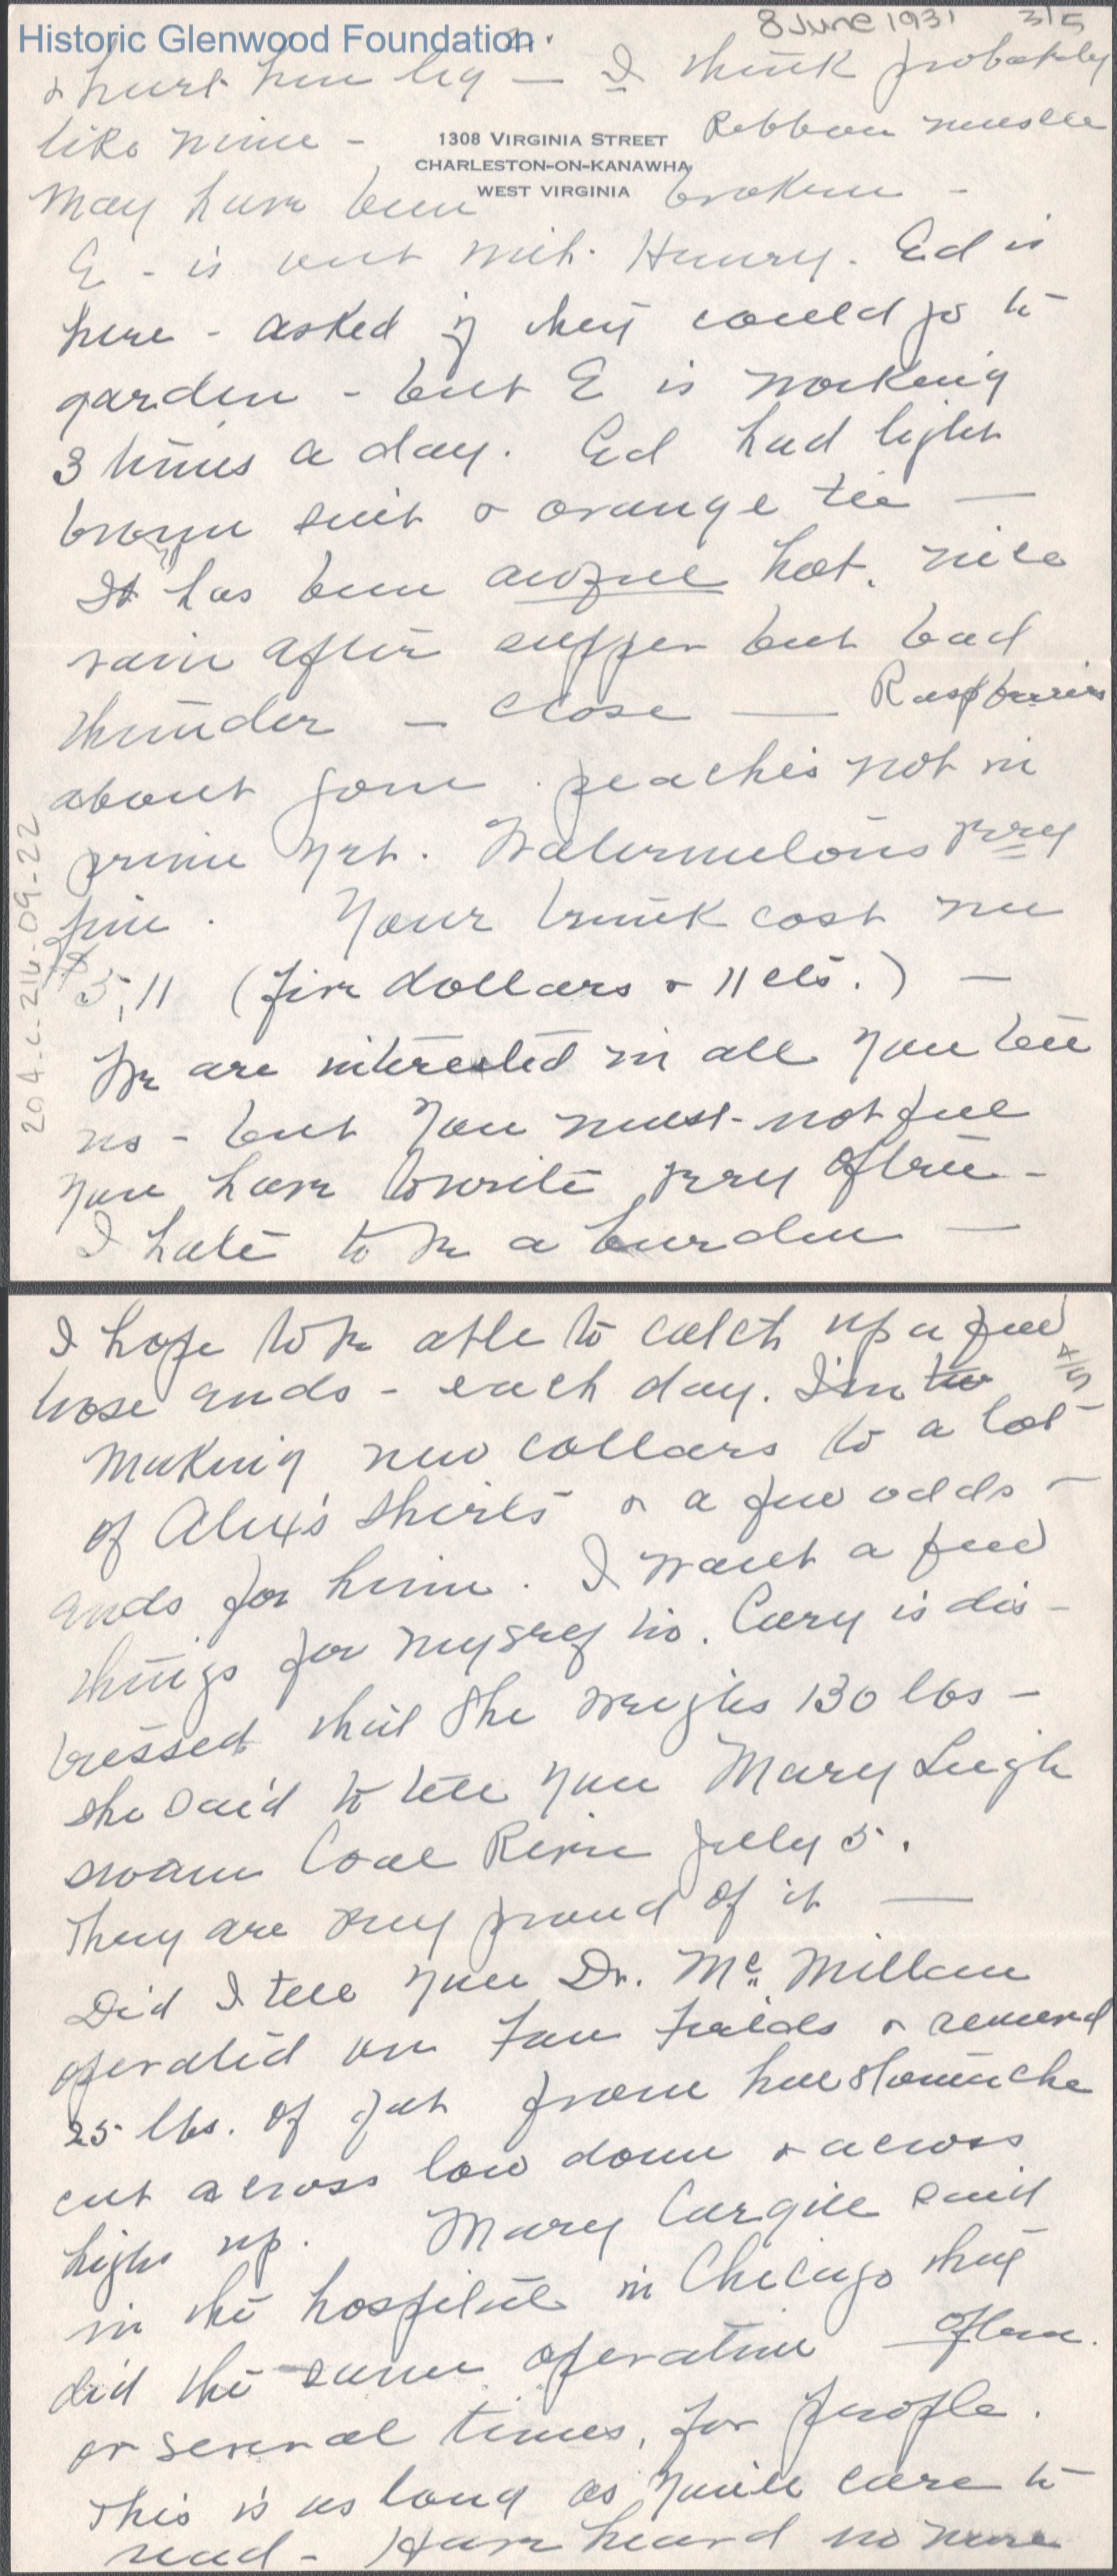 Historic Glenwood Foundation
8 June 1931 3/5
2.
& hurt her leg — I think probably
like mine - Ribbon muscle
1308 VIRGINIA STREET
CHARLESTON-ON-KANAWHA
WEST VIRGINIA
may have been broken -
E - is out with Henry. Ed is
here - asked if they could go to
garden - but E is working
3 times a day. Ed had light
brown suit & orange tie —
It has been awful hot. nice
rain after supper but bad
thunder — close — Raspberries
about gone. peaches not in
prime yet. Watermelons very
fine. Your trunk cost me
$5,11 (five dollars & 11 cts.) —
We are interested in all you tell
us - but you must not feel
you have to write very often -
I hate to be a burden —
204-c-216-09-22
I hope to be able to catch up a few
4/5
loose ends - each day. I'm too
making new collars to a lot
of Alex's shirts & a few odds -
ends for him. I want a few
things for myself to. Cary is dis-
tressed that she weighs 130 lbs -
she said to tell you Mary Leigh
swam Coal River July 5.
They are very proud of it —
Did I tell you Dr. Mc Millan
operated on Fields & removed
25 lbs. of fat from her stomache
cut across low down & across
high up. Mary Cargill said
in the hospital in Chicago they
did the same operation often.
or several times, for people.
This is as long as you'll care to
read - Have heard no more